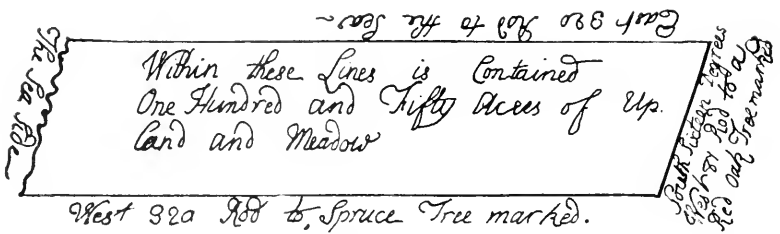 East 320 Rod to the Sea~
The Sea Side~
Within these Lines is Contained
One Hundred and Fifty Acres of Up.
Land and Meadow
South Sixteen Degrees
West 81 Rod to a
Red Oak Tree marked
West 320 Rod to, Spruce Tree marked.